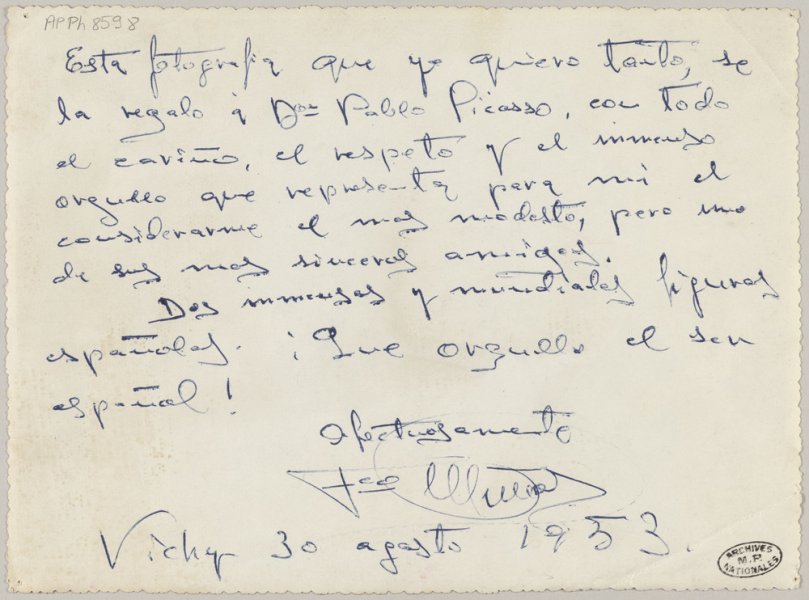 APPh 8598
Esta fotografia que yo quiero tanto, se
la regalo a Don Pablo Picasso, con todo
el cariño, el respeto y el inmenso
orgullo que representa para mi el
considerarme el mas modesto, pero uno
de sus mas sinceros amigos.
Dos inmensas y mundiales figuras
españolas. ¡Que orgullo el ser
español!
Afectuosamente
Fco
Vichy 30 agosto 1953.
ARCHIVES
M.P.
NATIONALES